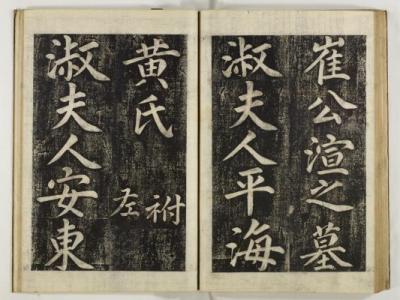 崔公渲之墓
淑夫人平海
黄氏
祔左
淑夫人安東